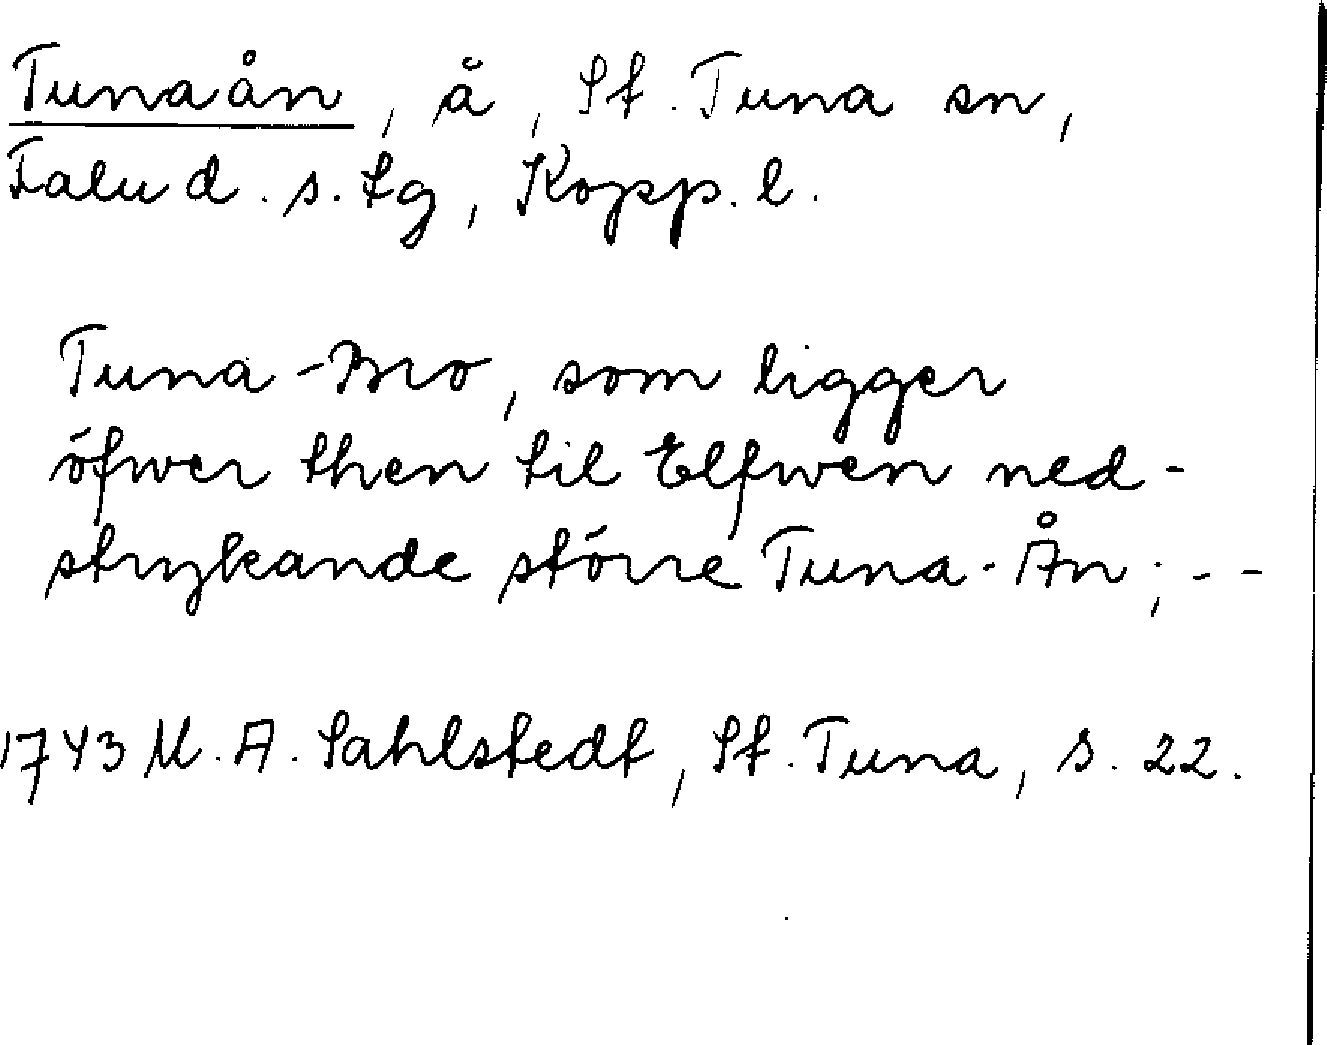 Tunaån, å, St. Tuna sn,
Falu d. s. tg, Kopp. l.
Tuna-Bro, som ligger
öfwer then til Elfwen ned-
strykande större Tuna-Ån; - -
1743 M. A. Sahlstedt, St. Tuna, s. 22.